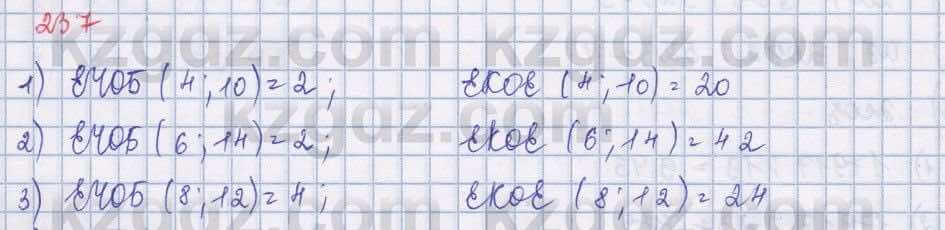 237
kzgdz.com kzgdz.com
1) ЕЧОБ (4; 10) = 2; ЕКОЕ (4; 10) = 20
2) ЕЧОБ (6; 14) = 2; ЕКОЕ (6; 14) = 42
kzgdz.com
3) ЕЧОБ (8; 12) = 4; ЕКОЕ (8; 12) = 24